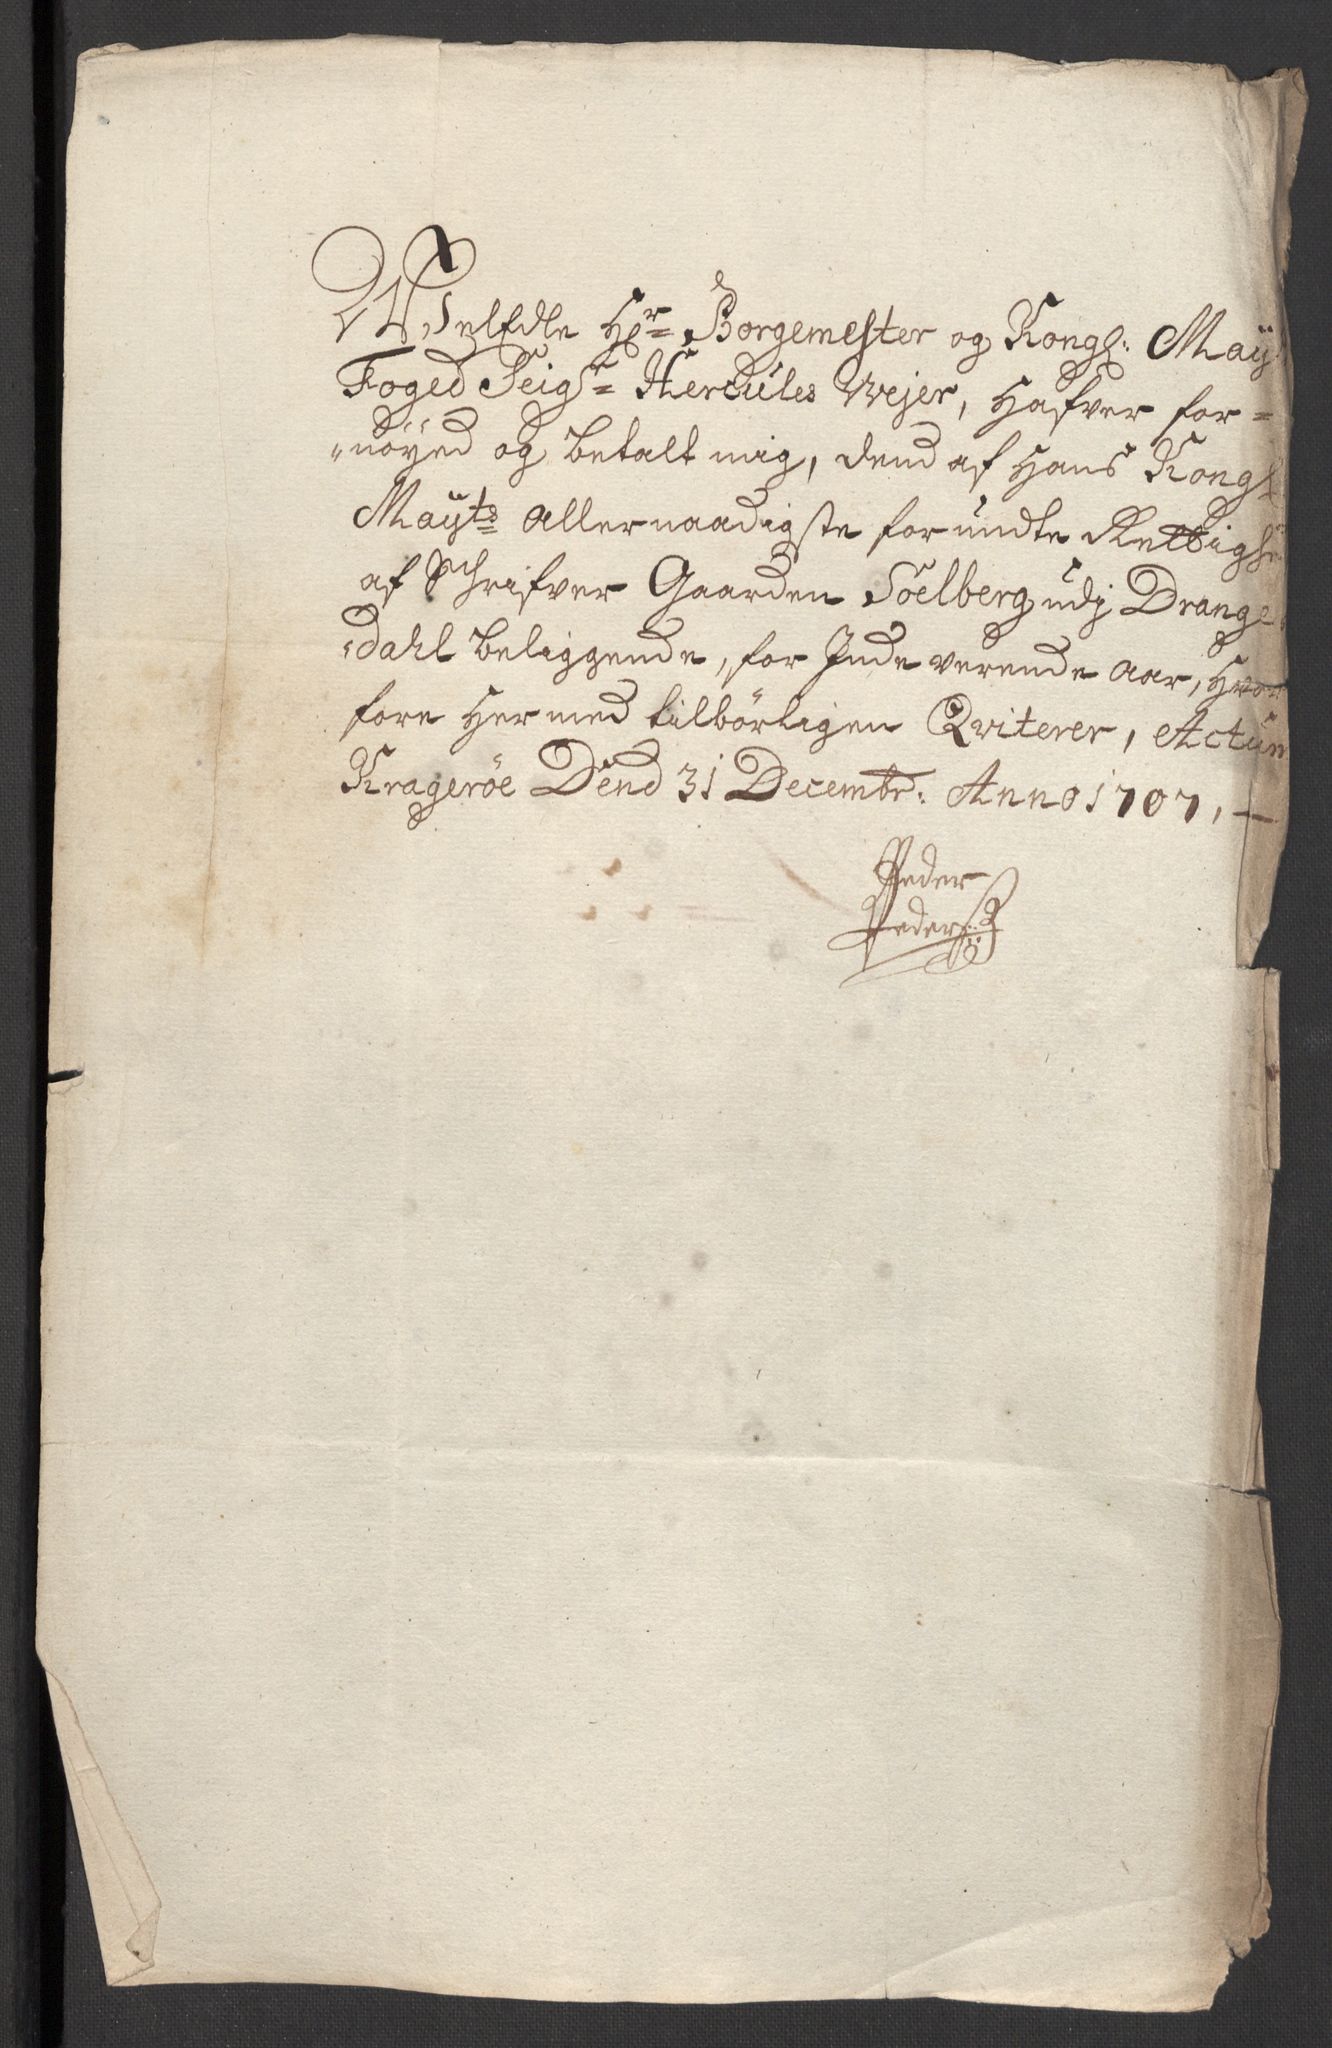 WelEdle Hr= Borgemester og Kongl: May
Foged Seigr= Hercules Wejer, Hafver for=
nöyed og betalt mig, dend af Hans Kongl
Mayts= Allernaadigste forundte Rettighe
af Schrifver Gaarden Söelberg udj Drange
dahl beliggende, for Indeverende Aar, Hvor
fore Hermed tilbörligen Qviterer, Actum
Kragerøe Dend 31 Decembr: Anno 1707,
Peder
Peders: